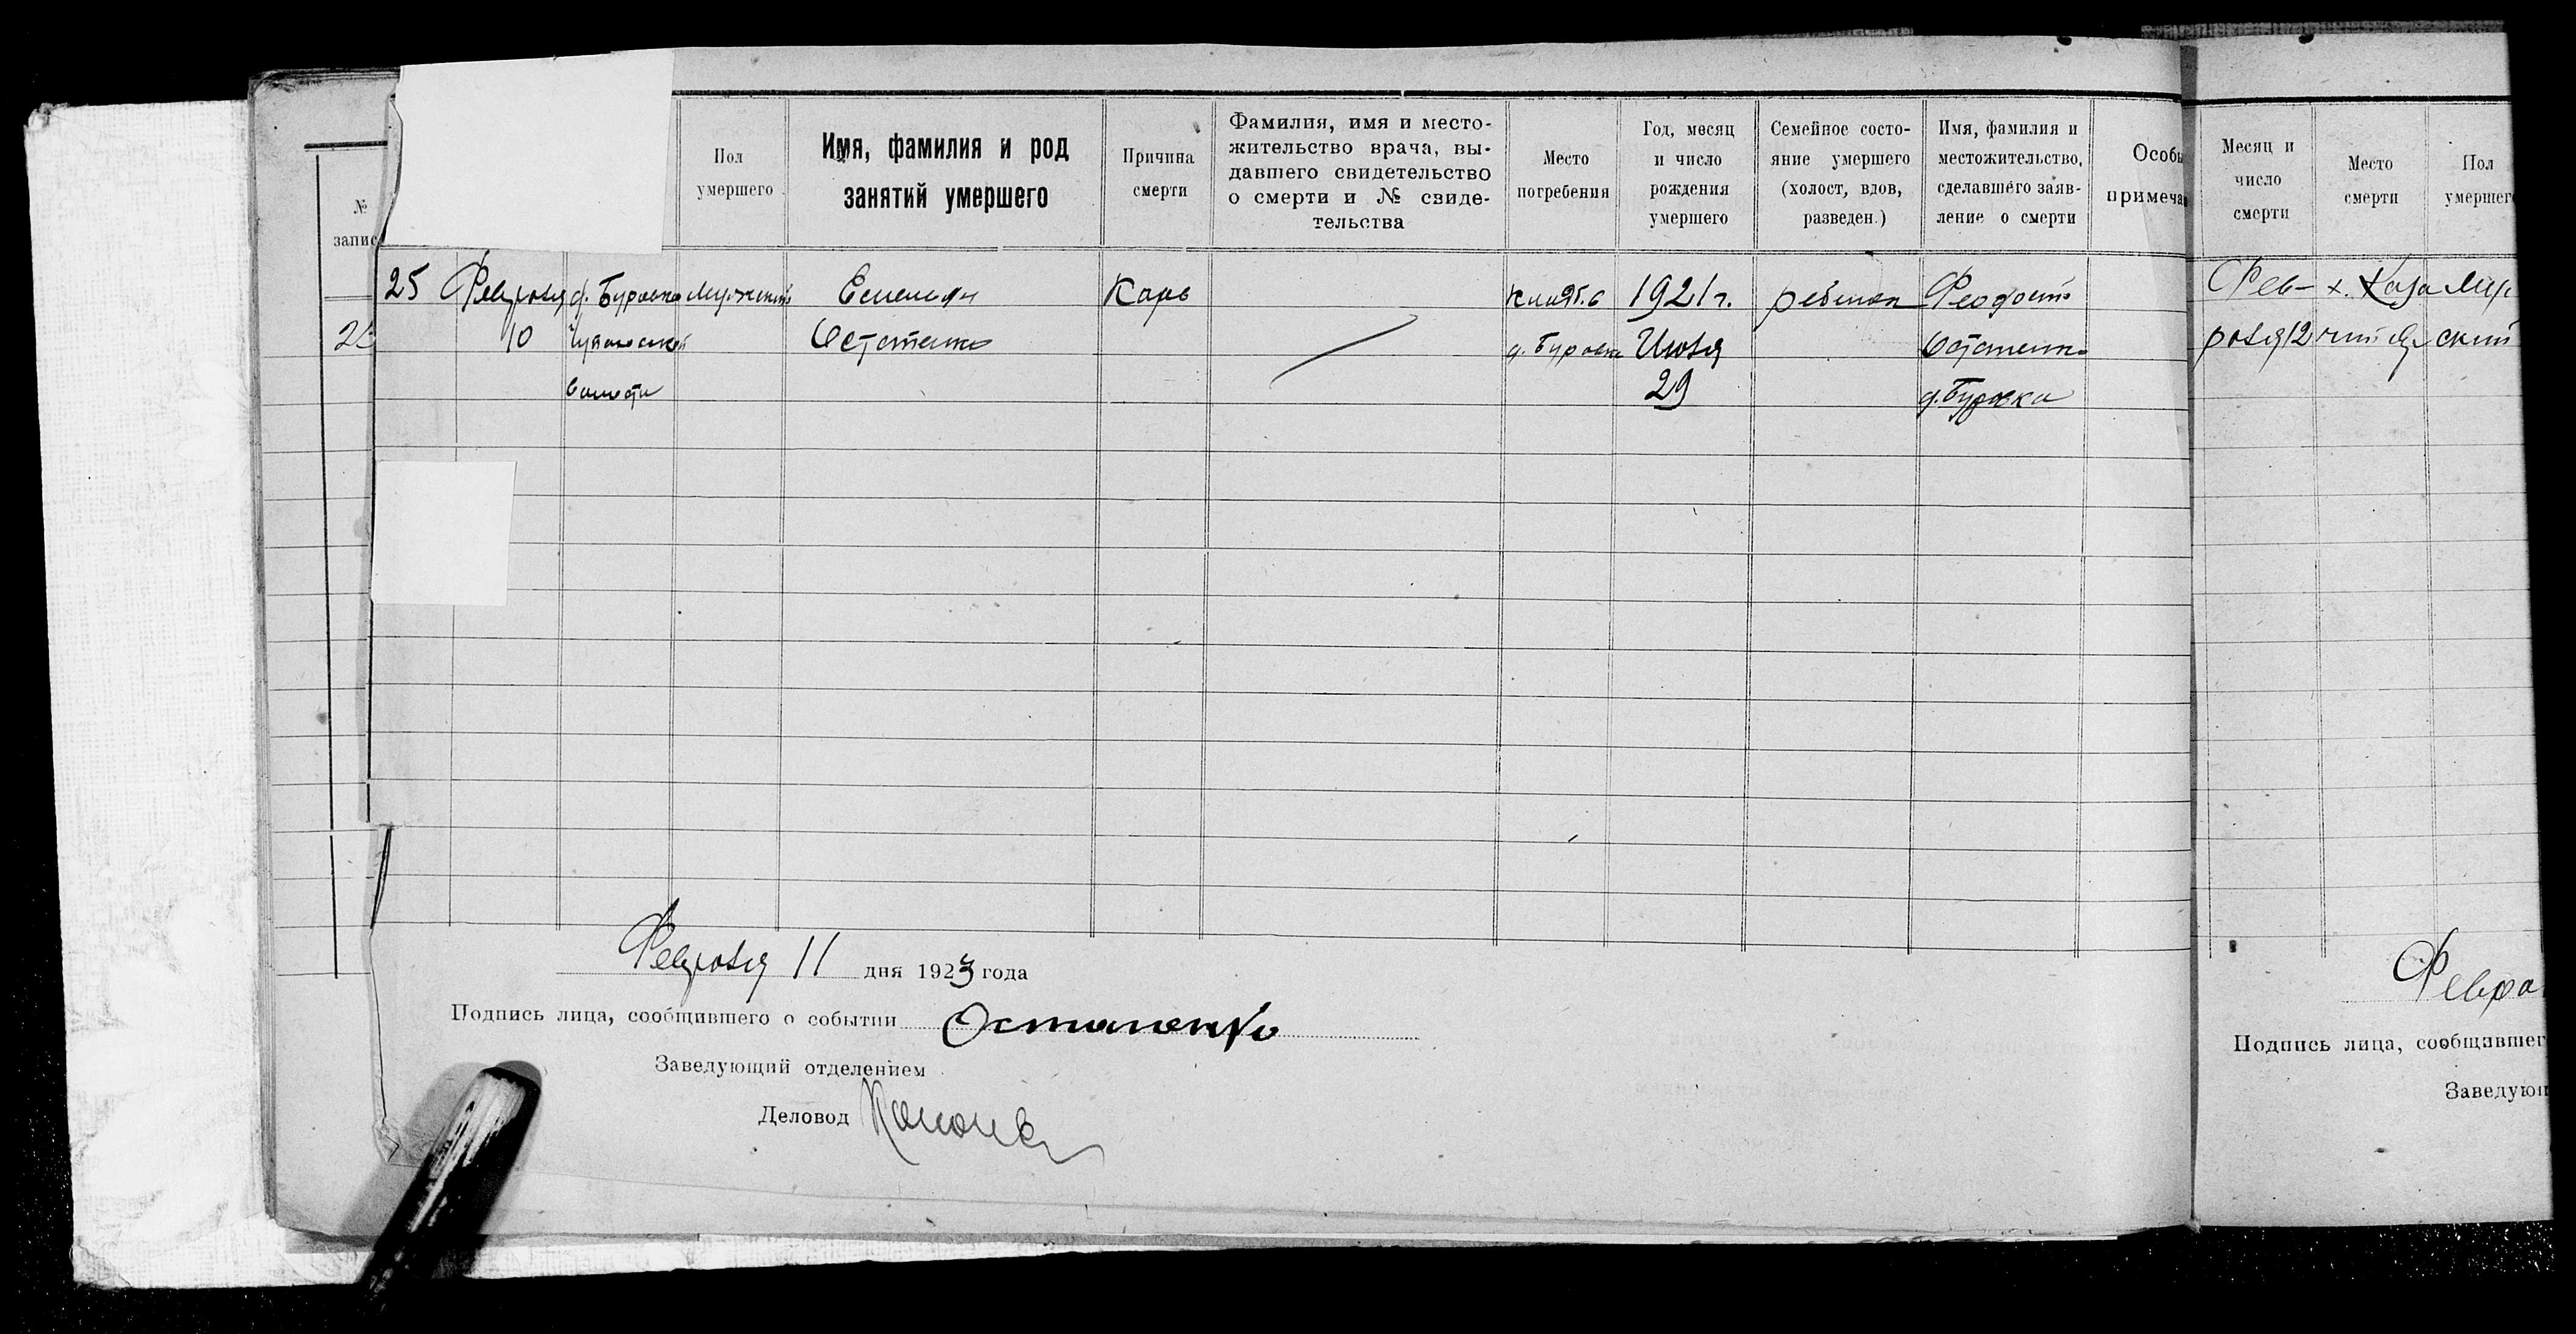 №
запис
Пол
умершего
Имя, фамилия и род
занятий умершего
Причина
смерти
Фамилия, имя и место-
жительство врача, вы-
давшего свидетельство
о смерти и № свиде-
тельства
Место
погребения
Год, месяц
и число
рождения
умершего
Семейное состо-
яние умершего
(холост, вдов,
разведен.)
Имя, фамилия и
местожительство,
сделавшего заяв-
ление о смерти
Особы
примеча
25
Февраля
10
д. Буровка
волости
Мужской
Емельян
Остапенко
Корь
кладб.
д. Буровка
1921 г.
Июля
29
ребенок
Феодосий
Остапенко
д. Буровка
Февраля 11 дня 1923 года
Подпись лица, сообщившего о событии Остапенко
Заведующий отделением
Деловод
Месяц и
число
смерти
Место
смерти
Пол
умершег
Фев-
раля 12
х. Каза
Муж
ский
Февра
Подпись лица, сообщившег
Заведую